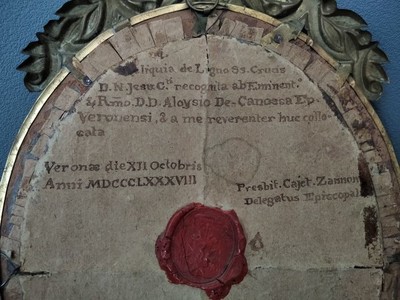 Reliquia de Ligno Ss. Crucis
D. N. Jesu C.ti recognita ab Eminent.
& Rmo. D. D. Aloysio De-Canossa Ep.
Veronensi, & a me reverenter huc collo-
cata
Veronæ die XII Octobris
Anni MDCCCLXXXVIII
Presbit. Cajet. Zannoni
Delegatus Episcopal